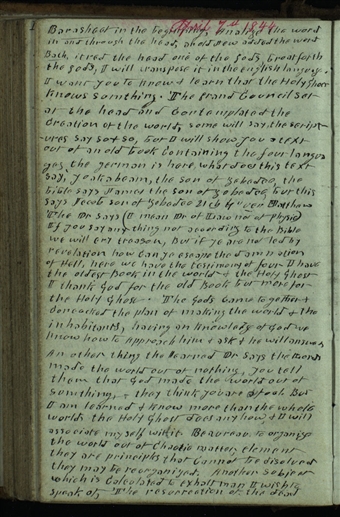 April 7th 1844
Barasheat in the beginning, analize the word
in and through the head, an old Jew added the word
Bath, it read the head one of the Gods broat forth
the Gods, I will transpose it in the english language.
I want you to know & learn that the Holy Ghost
knows somthing. The grand Councill set
at the head and contemplated the
creation of the world, some will say, the script
ures say so & so, but I will show you a text
out of an old book containing the four langua
ges, the german is here, what does this text
say, Yeakabeam, the son of Zebadee, the
bible says James the son of Zebadee, but this
says Jacob son of Zebadee 21 ch 4th ver Matthew
The Dr says (I mean Dr of Law not of physic)
If you say any thing not according to the Bible
we will cry treason, But if ye are not led by
revelation how can ye escape the damnation
of Hell, here we have the testimony of four I have
the oldest Book in the world & the Holy Ghost
I thank God for the old Book but more for
the Holy Ghost. The Gods came together &
concocked the plan of making the world & the
inhabitants, having an knowledge of God we
know how to approach him & ask & he will answer
An other thing the learned Dr says the Lords
made the world out of nothing, you tell
them that God made the world out of
sumthing, & they think you are a fool. But
I am learned & know more than the whole
world, the Holy Ghost does any how, & I will
associate myself with it. Beaureau, to organize
the world out of chaotic matter, element
they are principles that cannot be disolved
they may be reorganized. Another subject
which is calculated to exhalt man I wish to
speak of, The resurection of the dead